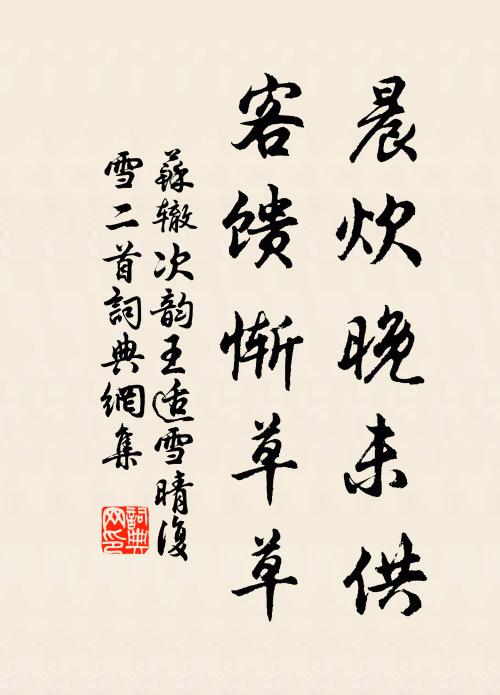 晨炊晚未供
客馈惭草草
蘇辙次韵王适雪晴復
雪二首詞典網集
詞典
网印